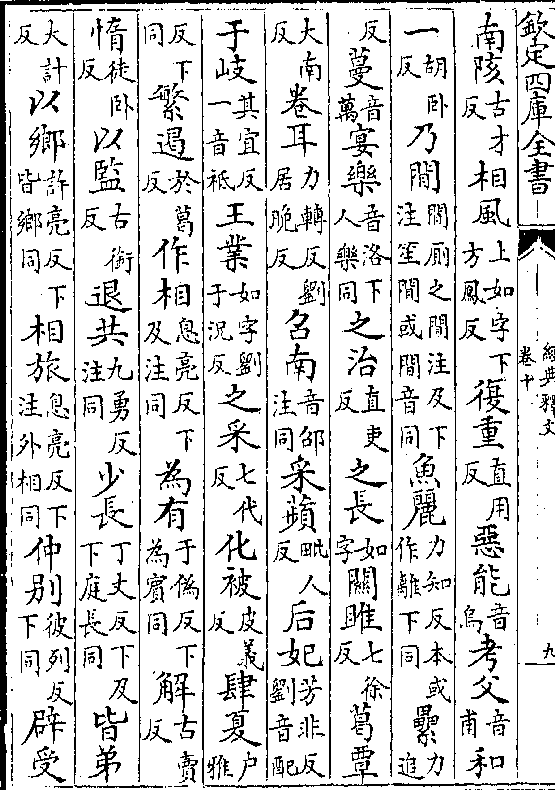 欽定四庫全書
經典釋文
卷十
九
南陔古才反相風上如字下方鳳反復重直用反惡能音烏考父音甫和
一胡卧反乃間間厠之間注及下注笙間或間音同魚麗力知反本或作離下同纍力追
反蔓音萬宴樂音洛下人樂同之治直吏反之長如字關雎七徐反葛覃
大南反卷耳力轉反劉居晚反召南音邵注同采蘋毗人反后妃芳非反劉音配
于岐其宜反一音祗王業如字劉于況反之采七代反化被皮義反肆夏户雅
反下同繁遏於葛反作相息亮反下及注同為有于偽反下為賓同解古賣反
惰徒卧反以監古銜反退共九勇反注同少長丁丈反下及下庭長同皆弟
大計反以鄉許亮反下皆鄉同相旅息亮反下注外相同仲别彼列反下同辟受